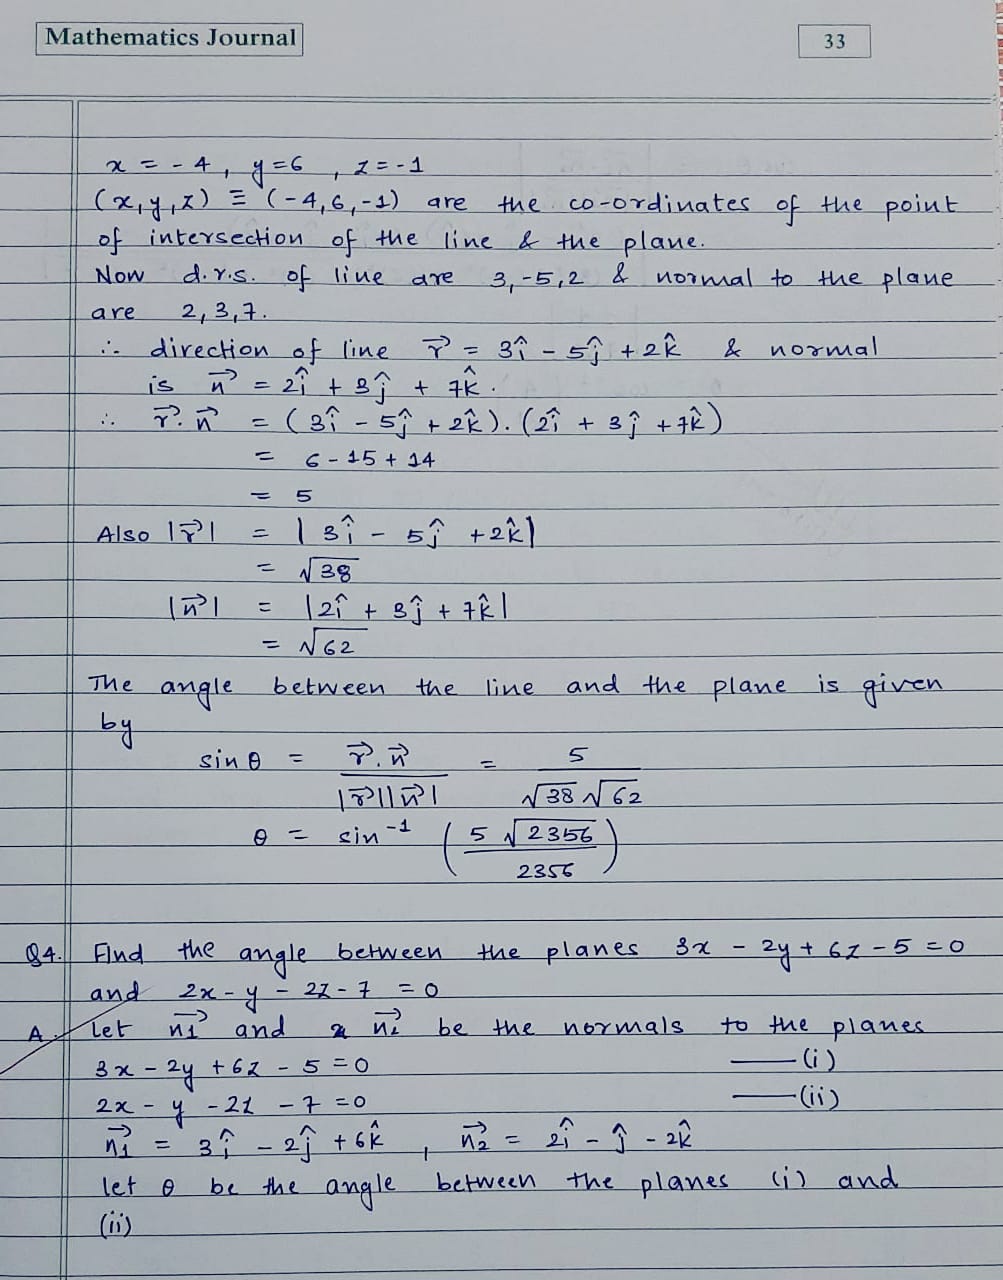 Mathematics Journal
33
x = - 4 , y = 6 , z = - 1
(x, y, z) ≡ (-4, 6, -1) are the co-ordinates of the point
of intersection of the line & the plane.
Now d.r.s. of line are 3, -5, 2 & normal to the plane
are 2, 3, 7.
∴ direction of line r⃗ = 3î - 5ĵ + 2k̂ & normal
is n⃗ = 2î + 3ĵ + 7k̂.
∴ r⃗. n⃗ = (3î - 5ĵ + 2k̂). (2î + 3ĵ + 7k̂)
= 6 - 15 + 14
= 5
Also |r⃗| = |3î - 5ĵ + 2k̂|
= √38
|n⃗| = |2î + 3ĵ + 7k̂|
= √62
The angle between the line and the plane is given
by
sin θ = r⃗. n⃗ / |r⃗||n⃗| = 5 / √38 √62
θ = sin⁻¹ (5 √2356 / 2356)
Q4. Find the angle between the planes 3x - 2y + 6z - 5 = 0
and 2x - y - 2z - 7 = 0
A. let n₁⃗ and n₂⃗ be the normals to the planes
3x - 2y + 6z - 5 = 0 —(i)
2x - y - 2z - 7 = 0 —(ii)
n₁⃗ = 3î - 2ĵ + 6k̂ , n₂⃗ = 2î - ĵ - 2k̂
let θ be the angle between the planes (i) and
(ii)